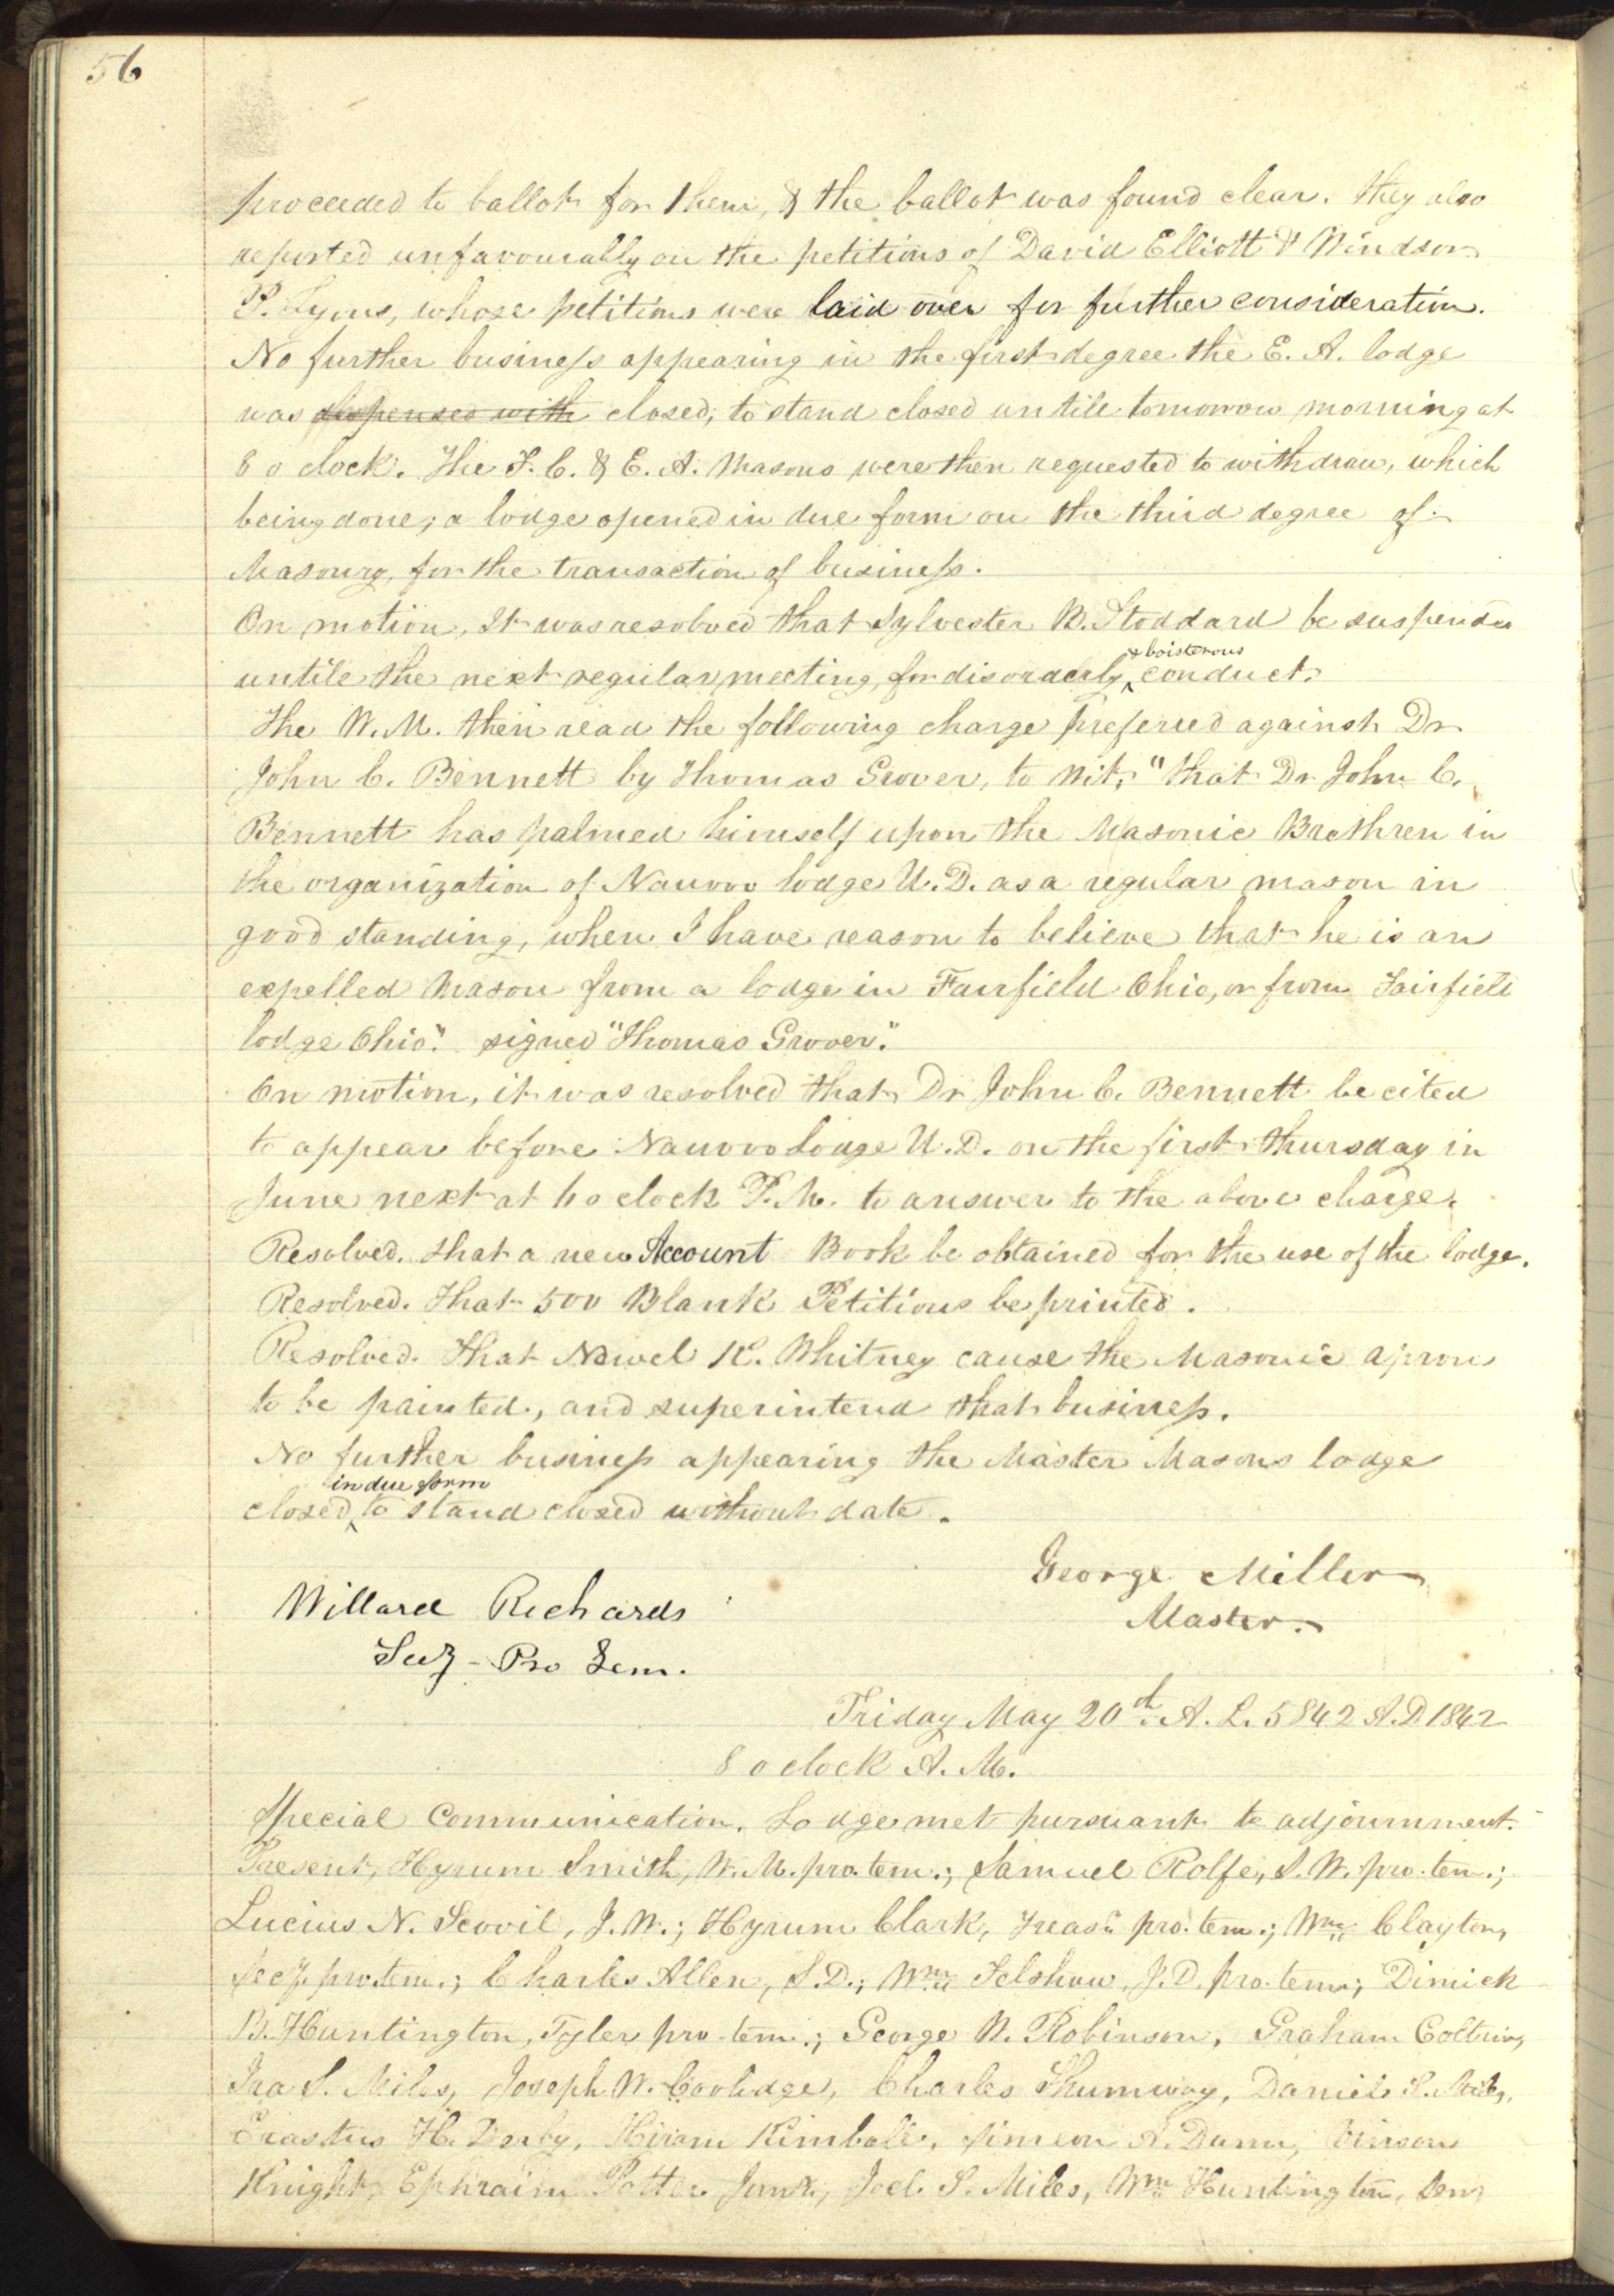 56
proceeded to ballot for them, & the ballot was found clear. they also
reported unfavourally on the petitions of David Elliott & Windsor
P. Lyons, whose petitions were laid over for further consideration.
No further business appearing in the first degree the E. A. lodge
was dispensed with closed, to stand closed untile tomorrow morning at
8 o clock. The F. C. & E. A. Masons were then requested to withdraw, which
being done, a lodge opened in due form on the third degree of
Masonry, for the transaction of business.
On motion, It was resolved that Sylvester B. Stoddard be suspended
& boisterous
untile the next regular meeting, for disorderly ‸ conduct.
The W. M. then read the following charge prefered against Dr
John C. Bennett by Thomas Grover, to wit, "that Dr John C.
Bennett has palmed himself upon the Masonic Brethren in
the organization of Nauvoo lodge U. D. as a regular mason in
good standing, when I have reason to believe that he is an
expelled Mason from a lodge in Fairfield Ohio, or from Fairfield
lodge Ohio." signed "Thomas Grover."
On motion, it was resolved that Dr John C. Bennett be cited
to appear before Nauvoo Lodge U. D. on the first thursday in
June next at 1 o clock P. M. to answer to the above charge.
Resolved. that a new Account Book be obtained for the use of the lodge.
Resolved. That 500 Blank Petitions be printed.
Resolved. That Newel K. Whitney cause the Masonic aprons
to be painted, and superintend that business.
No further business appearing the Master Masons lodge
in due form
closed ‸ to stand closed without date.
George Miller
Master.
Willard Richards
Secy - Pro Tem.
Friday May 20th. A. L. 5842 A. D 1842
8 o clock A. M.
Special Communication. Lodge met pursuant to adjournment.
Present, Hyrum Smith, W. M. pro. tem.; Samuel Rolfe, S. W. pro. tem.;
Lucius N. Scovil, J. W.; Hyrum Clark, Treasr. pro. tem.; Wm. Clayton,
Secy. pro. tem.; Charles Allen, S. D.; Wm. Felshaw, J. D. pro. tem; Dimick
B. Huntington, Tyler pro. tem.; George W. Robinson, Graham Coltrin,
Ira S. Miles, Joseph W. Coolidge, Charles Shumway, Daniel S. Miles,
Erastus H. Derby, Hiram Kimball, Simeon A. Dunn, Vinson
Knight, Ephraim Potter Junr., Joel S. Miles, Wm. Huntington, Sen,